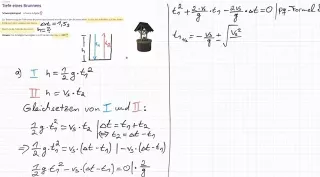 Tiefe eines Brunnens
Δt = 1,5 s
h = ?
h
t₁
t₂
a) I h = 1/2 g · t₁²
II h = vₛ · t₂
Gleichsetzen von I und II:
1/2 g · t₁² = vₛ · t₂ | Δt = t₁ + t₂
⇔ t₂ = Δt - t₁
⇒ 1/2 g · t₁² = vₛ · (Δt - t₁) | - vₛ · (Δt - t₁)
1/2 g · t₁² - vₛ · (Δt - t₁) = 0 | · 2/g
t₁² + 2·vₛ/g · t₁ - 2vₛ/g · Δt = 0 | pq-Formel
t₁,₂ = - vₛ/g ± √vₛ²